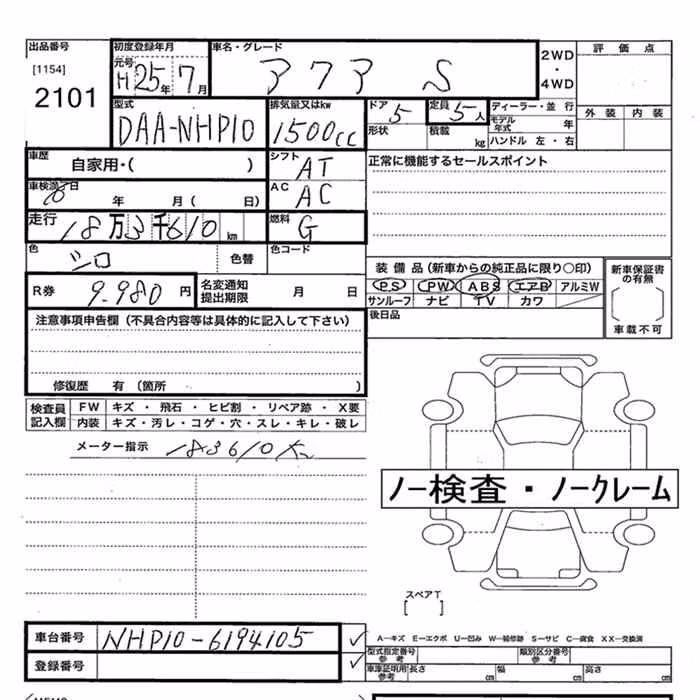 出品番号 初度登録年月 車名・グレード 2WD・4WD 評価点
[1154] 元号 H25年7月 アクア S
2101
外装 内装
型式 排気量又はkw ドア 5 定員 5人 ディーラー・並行
DAA-NHP10 1500cc 形状 積載 kg モデル年式 年
ハンドル 左・右
車歴 自家用・( ) シフト AT 正常に機能するセールスポイント
車検満了日 年 月( 日) AC AC
走行 18万3千610km 燃料 G
色 シロ 色替 色コード
装備品(新車からの純正品に限り○印) 新車保証書の有無
R券 9.980円 名変通知提出期限 月 日 PS PW ABS エアB アルミW
サンルーフ ナビ TV カワ
車載不可
注意事項申告欄(不具合内容等は具体的に記入して下さい) 後日品
修復歴 有(箇所 )
検査員記入欄 FW キズ・飛石・ヒビ割・リペア跡・X要
内装 キズ・汚レ・コゲ・穴・スレ・キレ・破レ
メーター指示 183610K
ノー検査・ノークレーム
スペアT
[ ]
車台番号 NHP10-6194105 ✓ A―キズ E―エクボ U―凹み W―補修跡 S―サビ C―腐食 XX―交換済
型式指定番号 参考 類別区分番号 参考
登録番号 ✓ 車庫証明用 参考 長さ cm 幅 cm 高さ cm